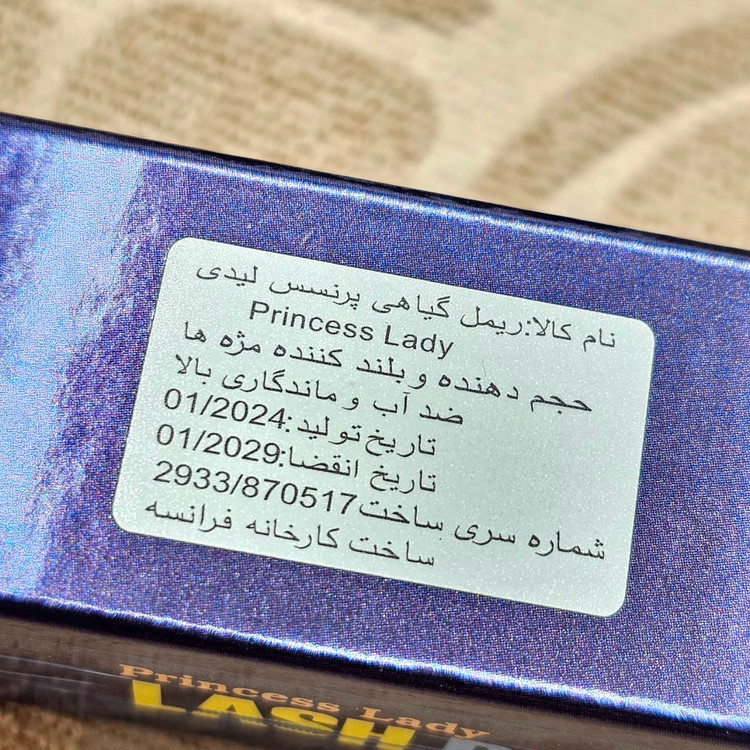 نام کالا:ریمل گیاهی پرنسس لیدی
Princess Lady
حجم دهنده و بلند کننده مژه ها
ضد آب و ماندگاری بالا
تاریخ تولید:01/2024
تاریخ انقضا:01/2029
شماره سری ساخت2933/870517
ساخت کارخانه فرانسه
Princess Lady
LASH